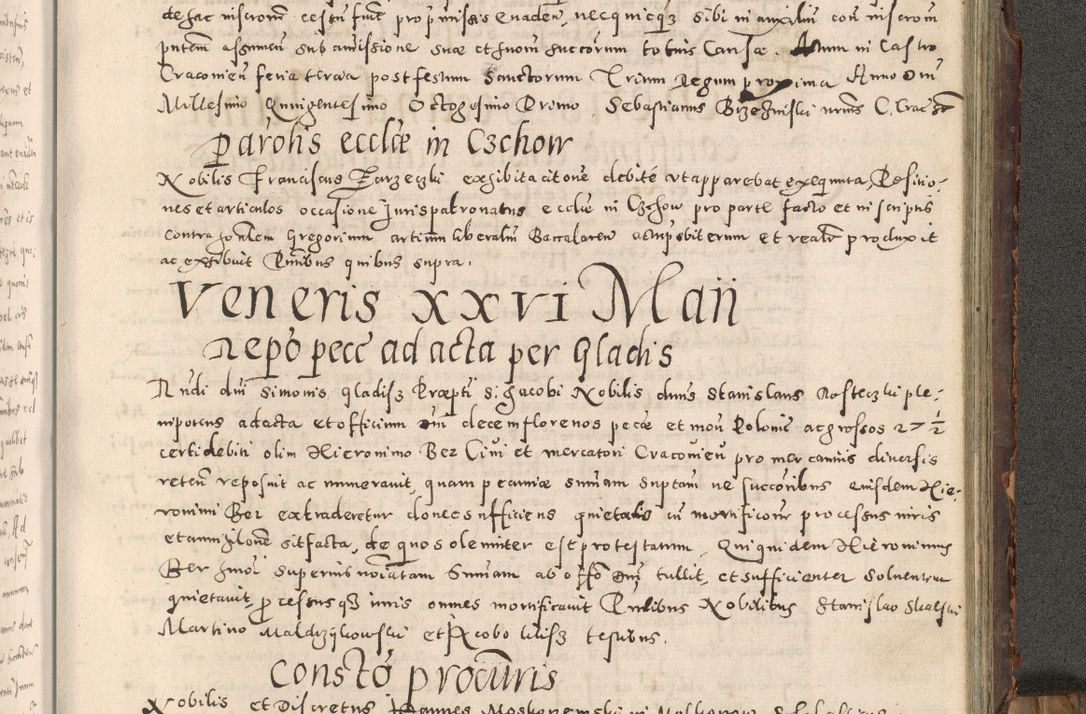 de hac niscronū cessū fuit pro pmissis evaden, nec quicq3 sibi in auxiliū
putem assumen sub amissione suæ et suorū succorum totius Causæ. Actum in Castro
Cracovieñ feria tercia post festum Sanctorum Trium Regum proxima Anno Dni
Millesimo Quingentesimo Octogesimo Primo. Sebastianus
paroħis eccłiæ in Czchow
Nobilis Franciscus Zarzeczki exhibita citone debitè ut apparebat exequuta, Positio-
nes et articulos occasione Jurispatronatus eccłiæ in Czchow pro parte facto et in scriptis
contra honłem Gregorium artium liberaliū Baccalareū ac et realr produxit
ac exhibuit Pñtibus quibus supra.
Veneris XXVI Maii
Repo pecc ad acta per Gladis
Nudi dni Simonis Gladisz Præpti S. Jacobi Nobilis dnus Stanislaus Rosteczki ple-
nipotens ad acta et officium dni decem florenos pecæ et mon Poloniē ac grossos 27 ½
certi debiti olim Hieronimo Bez Civi et mercatori Cracovień pro mercanciis diversis
reteñ reposuit ac numeravit, quam pecuniæ summam suptam ne succoribus eiusdem Hie-
ronimi Bez extraderetur donec sufficiens quietatio cū mortificone processus iuris
et annihilone sit facta, de quo solenniter est protestatum. Qui quidem Hieronimus
Bez hmoi superius noīatam Summam ab offo dni tullit, et sufficienter solventem
quietavit, processusq3 iuris omnes mortificavit Pñtibus Nobilibus Stanislao Skalski
Martino et Jacobo testibus.
Constō procūris
Nobilis et Discretus Joannes